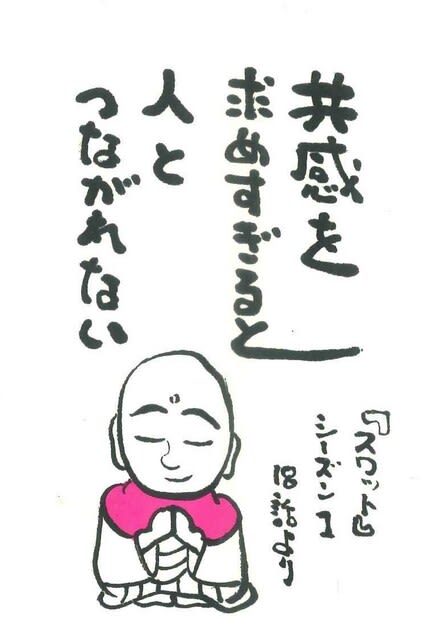 共感を
求めすぎると
人と
つながれない
『スワット』
シーズン1
18話より